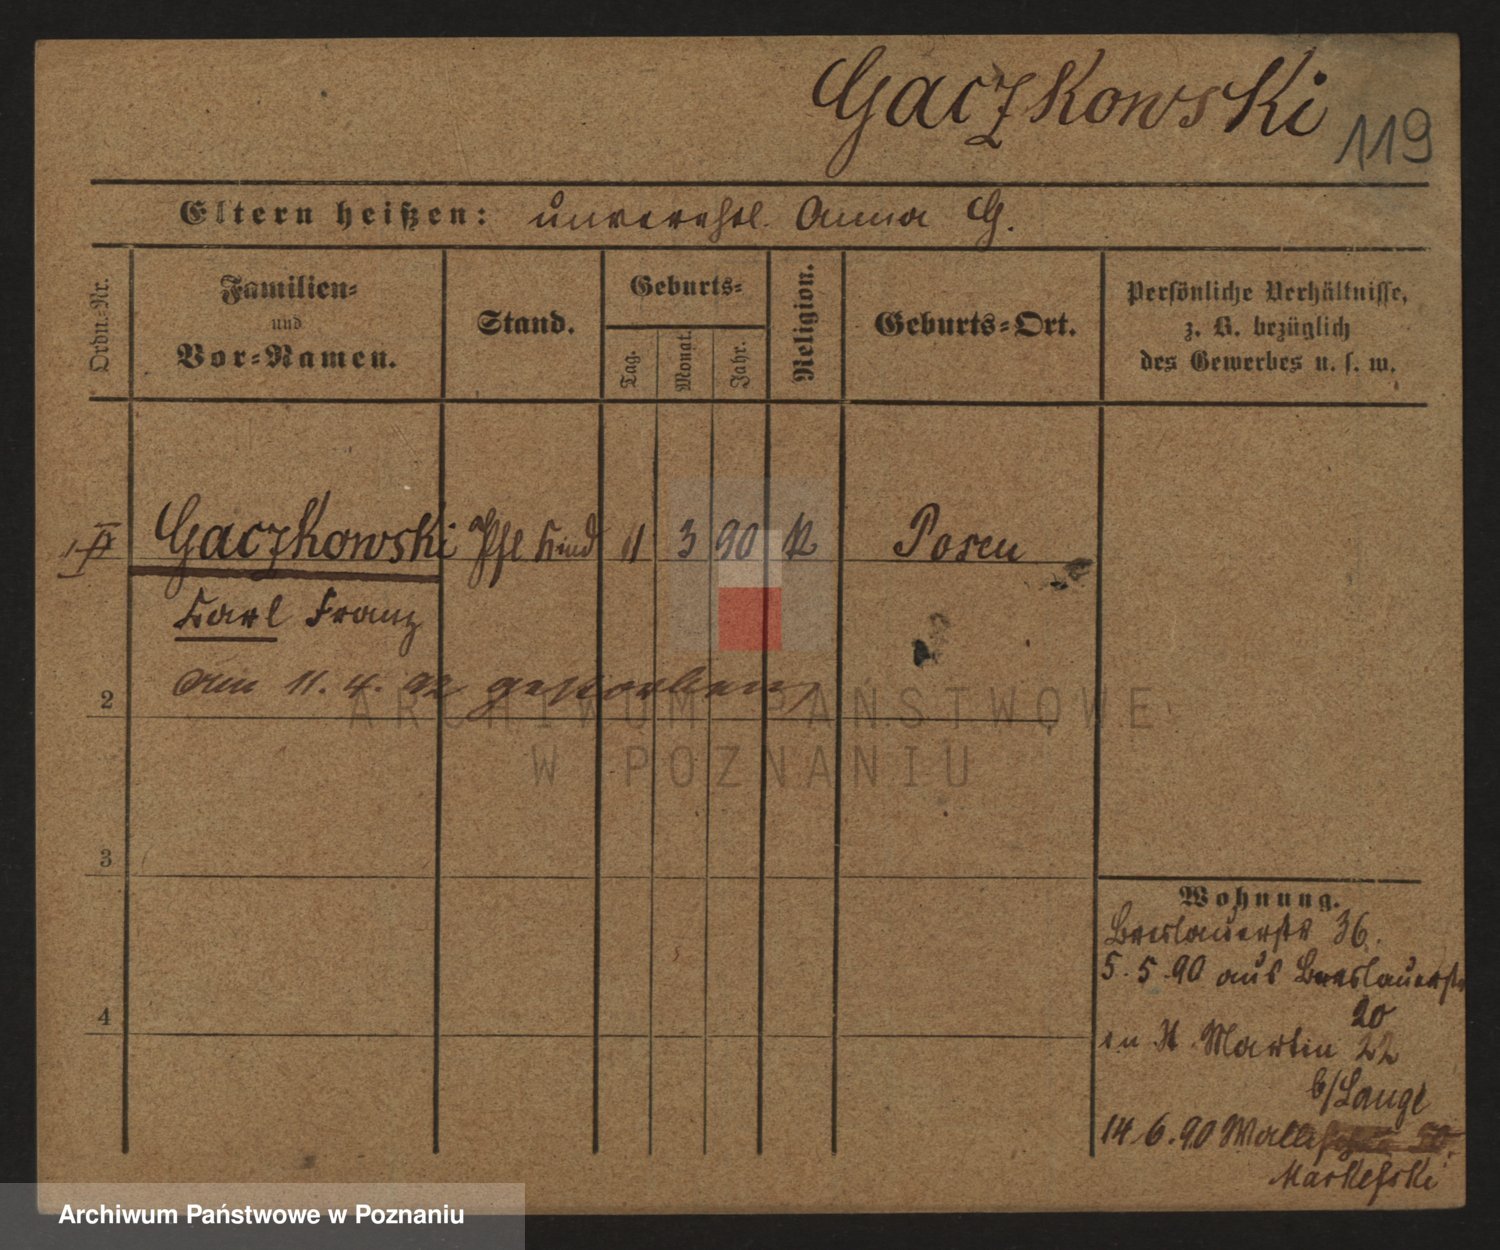 Gaczkowski 119
Eltern heißen: unverehel. Anna G.
Ordn.-Nr.
Familien-
und
Vor-Namen.
Stand.
Geburts-
Tag.
Monat.
Jahr.
Religion.
Geburts-Ort.
Persönliche Verhältnisse,
z. B. bezüglich
des Gewerbes u. s. w.
Gaczkowski Pfl Kind 11 3 90 K Posen
Karl Franz
2 Am 11. 4. 92 gestorben
ARCHIWUM PAŃSTWOWE
W POZNANIU
3
4
Wohnung.
Breslauerstr 36.
5.5.90 aus Breslauerstr
20
in St. Martin 22
b/Lange
14.6.90 Wallischei 50.
Markefski
Archiwum Państwowe w Poznaniu